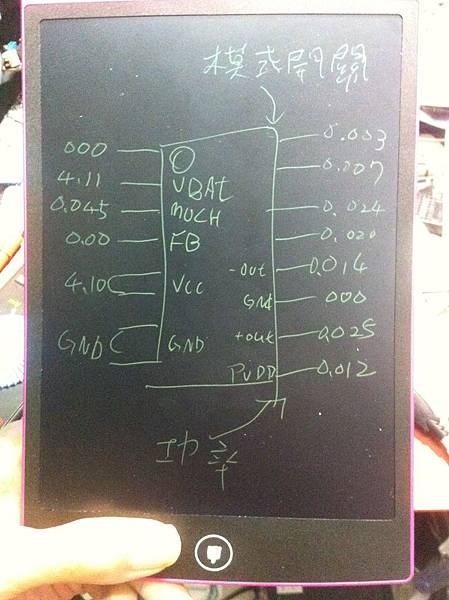 模式開關
000 0.003
4.11 VBAT 0.007
0.045 MUCH 0.024
0.00 FB 0.020
-out 0.014
4.10 VCC
GNd 000
GND GND +out 0.025
PVDD 0.012
功率